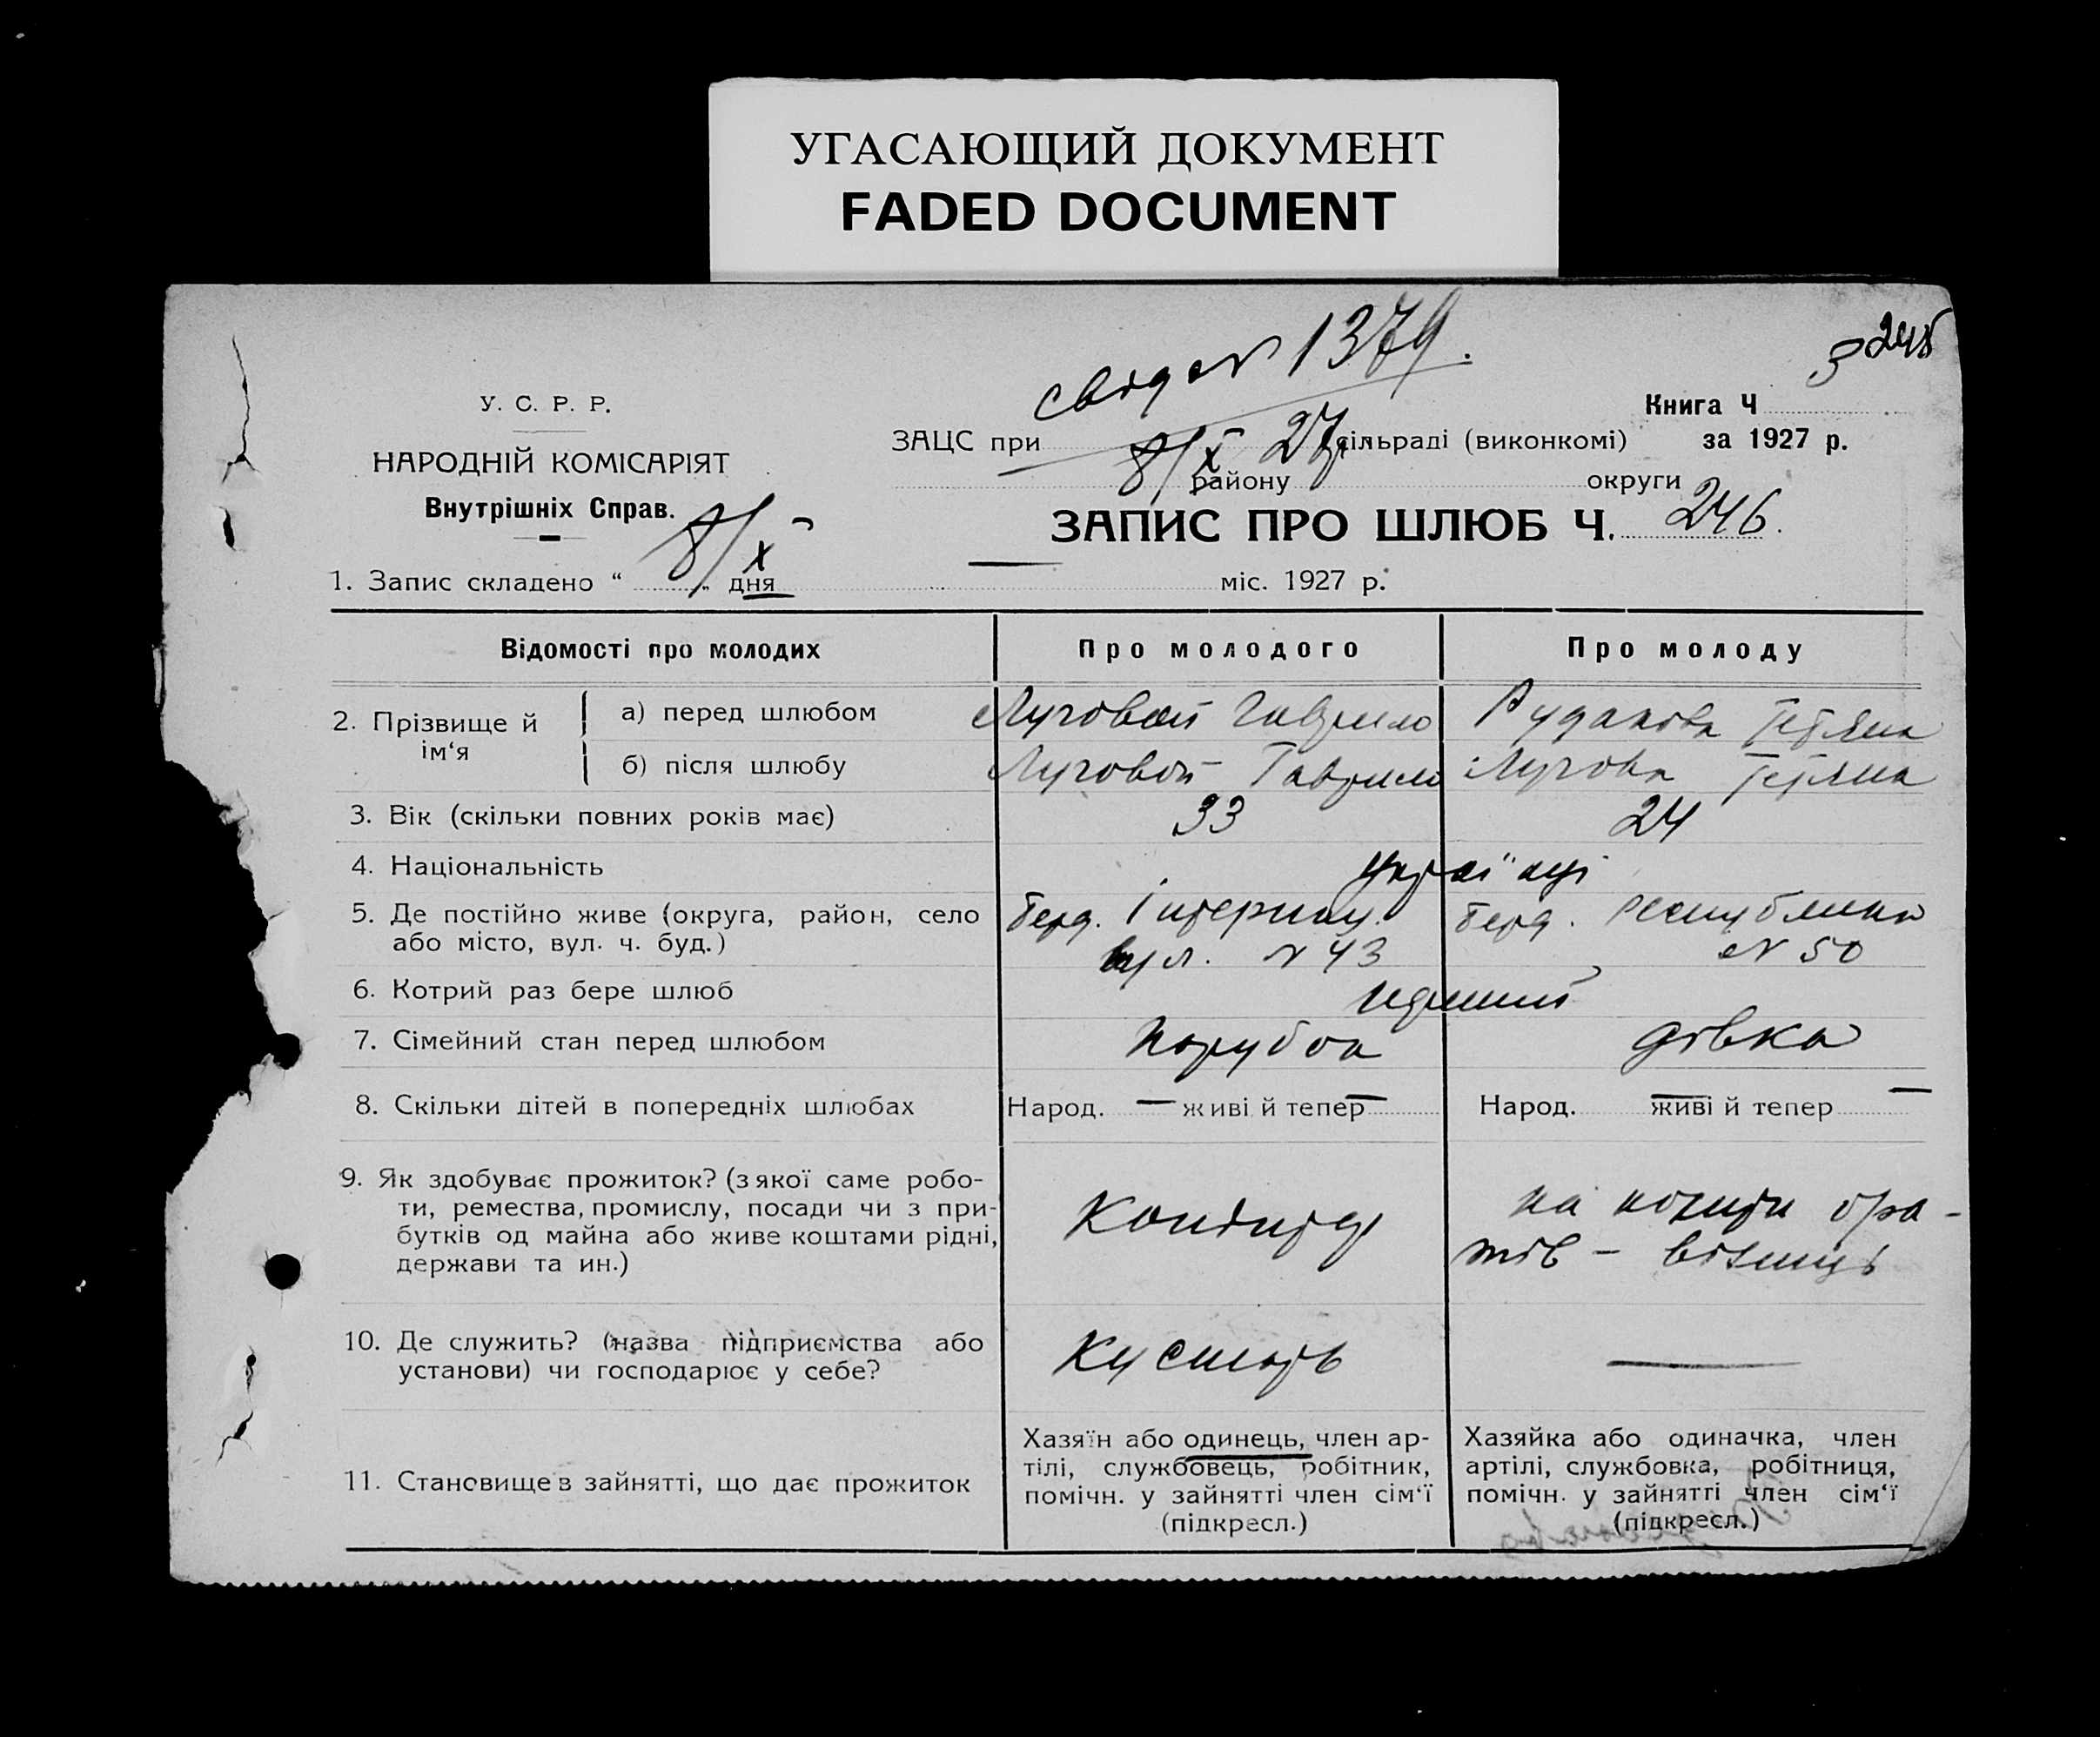 УГАСАЮЩИЙ ДОКУМЕНТ
FADED DOCUMENT
свід № 1379.
У. С. Р. Р.
НАРОДНІЙ КОМІСАРІЯТ
Внутрішніх Справ.
Книга Ч
ЗАЦС при 8/X 27 сільраді (виконкомі) за 1927 р.
району округи
ЗАПИС ПРО ШЛЮБ Ч. 246.
1. Запис складено “ 8/X „ дня міс. 1927 р.
Відомості про молодих Про молодого Про молоду
2. Прізвище й ім‘я
а) перед шлюбом Луговой Гаврило Рудакова Тетяна
б) після шлюбу Луговой Гаврило Лугова Тетяна
3. Вік (скільки повних років має) 33 24
4. Національність українці
5. Де постійно живе (округа, район, село Берд. Інтернац. Берд. Республики
або місто, вул. ч. буд.) вул. № 43 № 50
6. Котрий раз бере шлюб перший
7. Сімейний стан перед шлюбом парубок дівка
8. Скільки дітей в попередніх шлюбах Народ. — живі й тепер — Народ. — живі й тепер —
9. Як здобуває прожиток? (з якої саме робо-
ти, ремества, промислу, посади чи з при-
бутків од майна або живе коштами рідні,
держави та ин.)
Кондитер
на кошти бра-
тів – візниць
10. Де служить? (назва підприємства або
установи) чи господарює у себе?
Кустарь —
11. Становище в зайнятті, що дає прожиток
Хазяїн або одинець, член ар-
тілі, службовець, робітник,
помічн. у зайнятті член сім‘ї
(підкресл.)
Хазяйка або одиначка, член
артілі, службовка, робітниця,
помічн. у зайнятті член сім‘ї
(підкресл.)